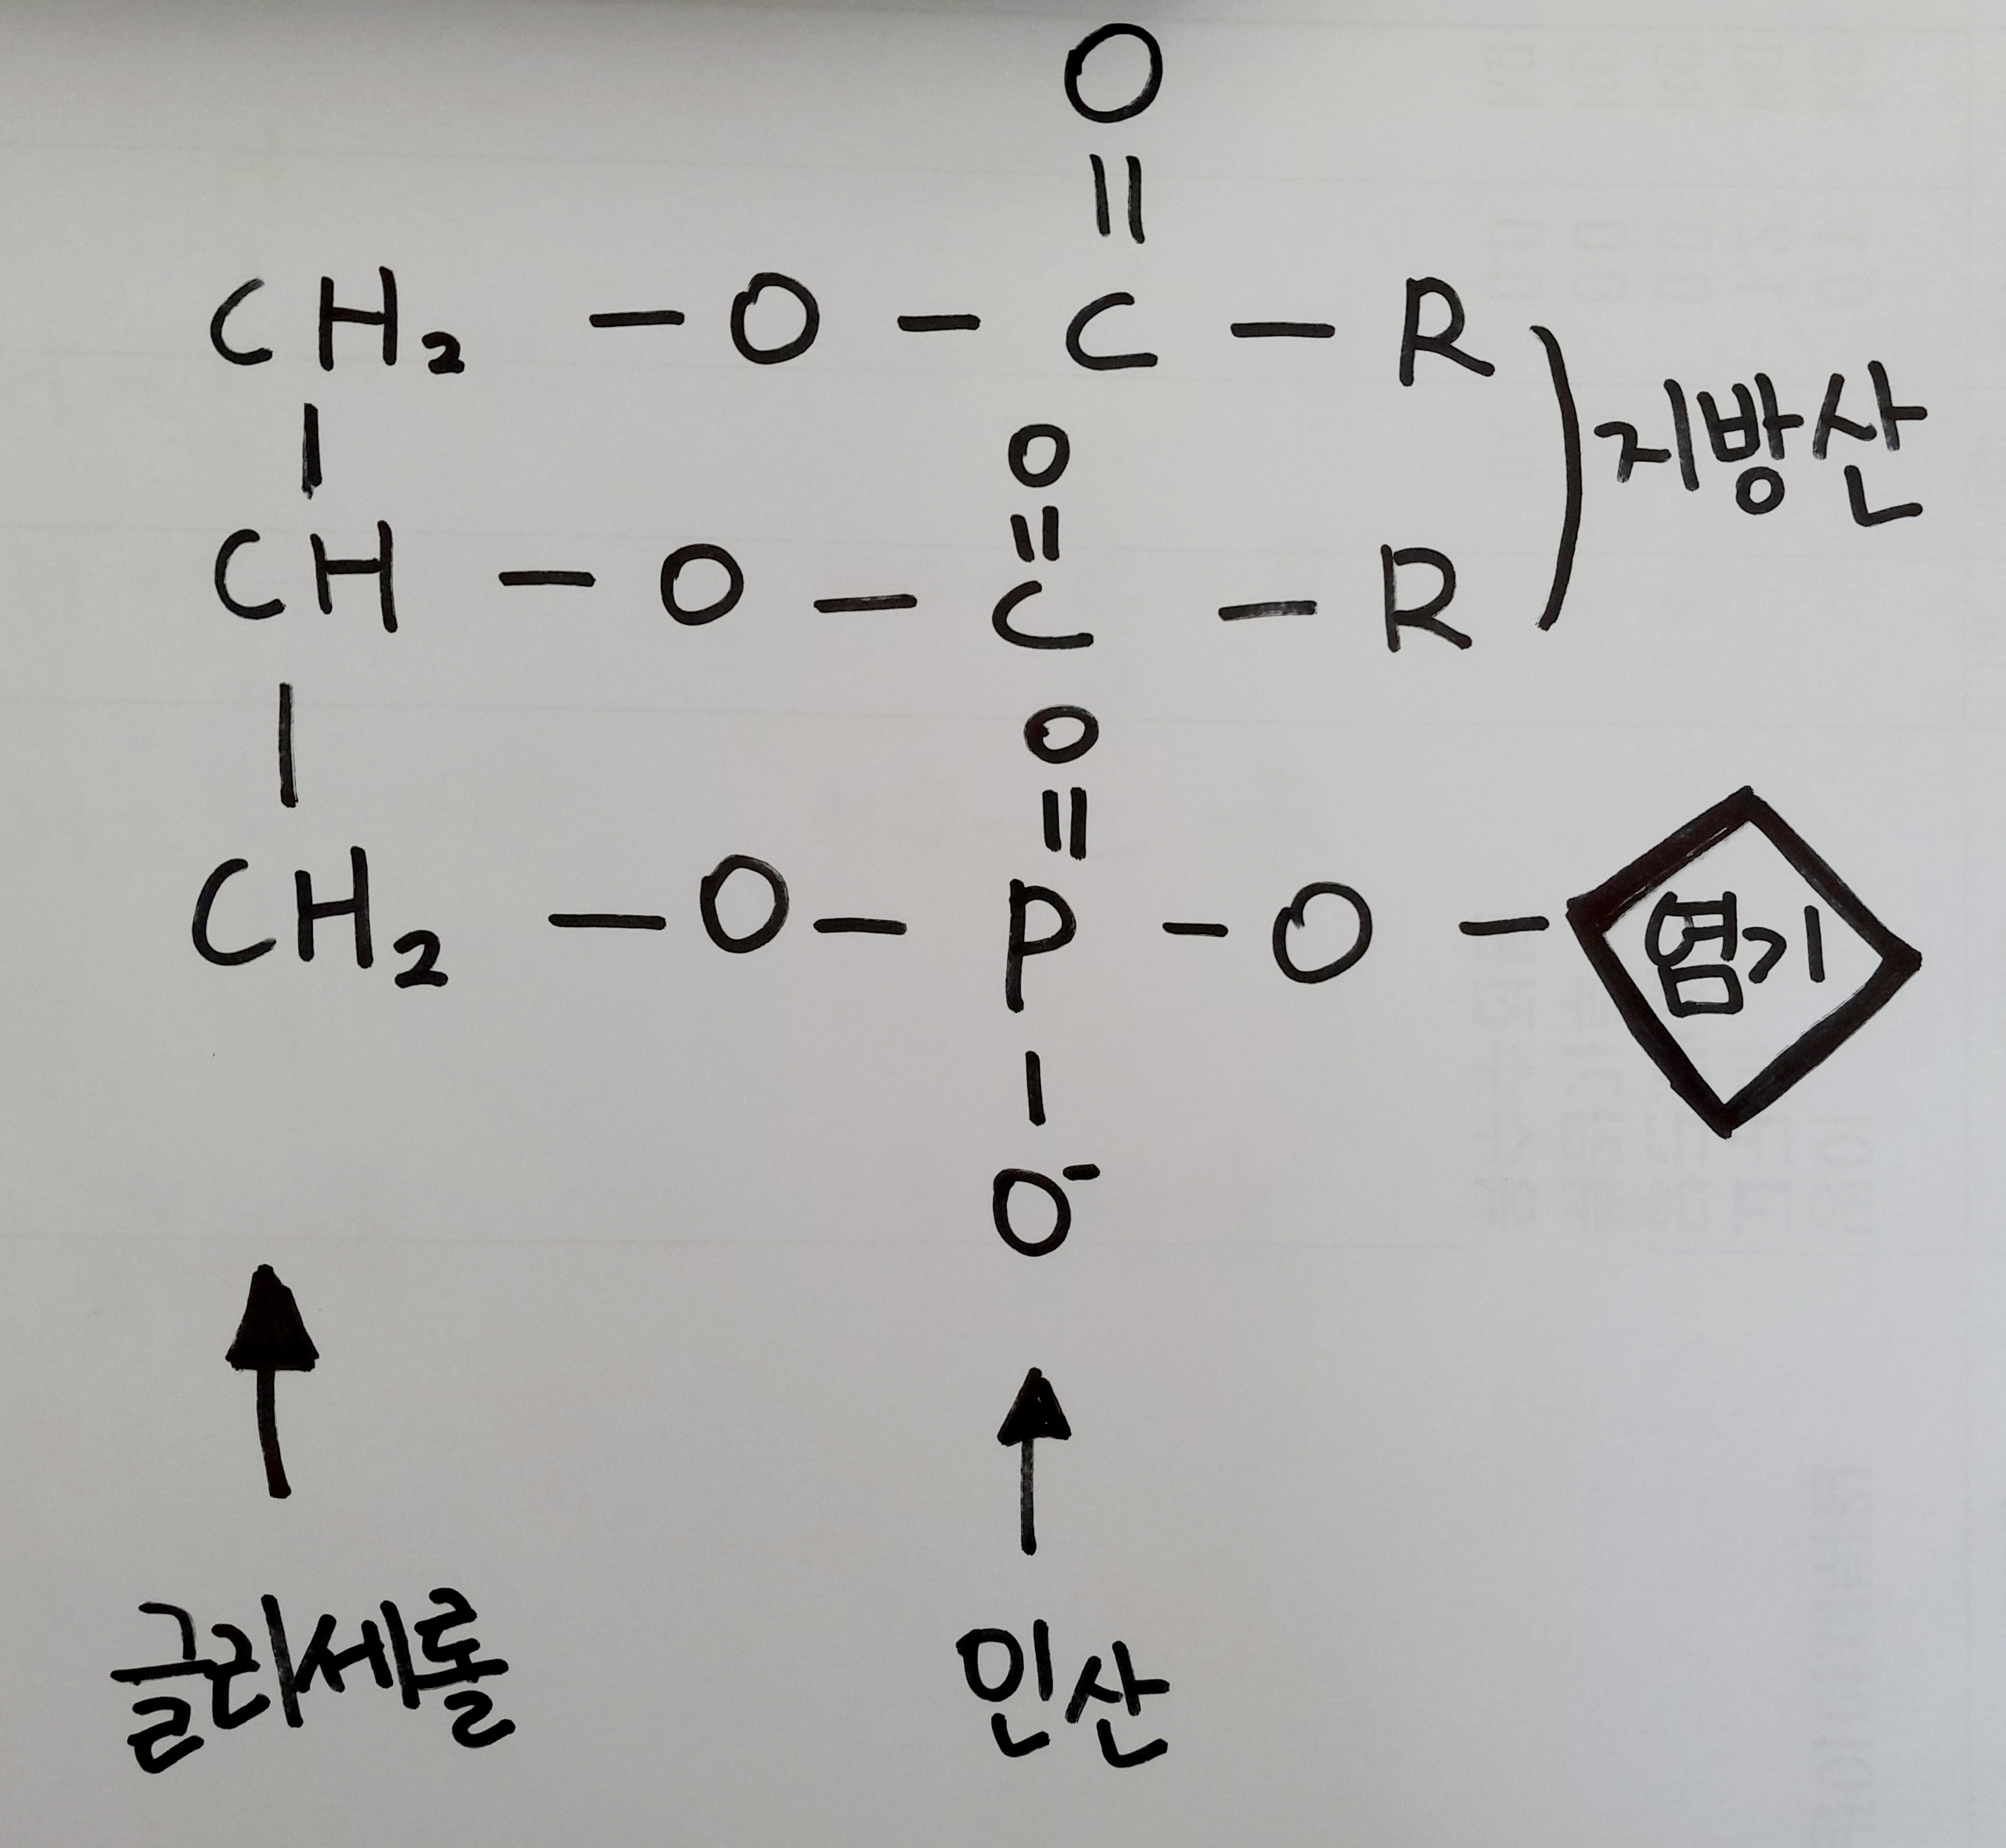 O
||
CH₂ — O — C — R
| O 지방산
||
CH — O — C — R
| O
||
CH₂ — O — P — O — 염기
|
O⁻
글리세롤 인산